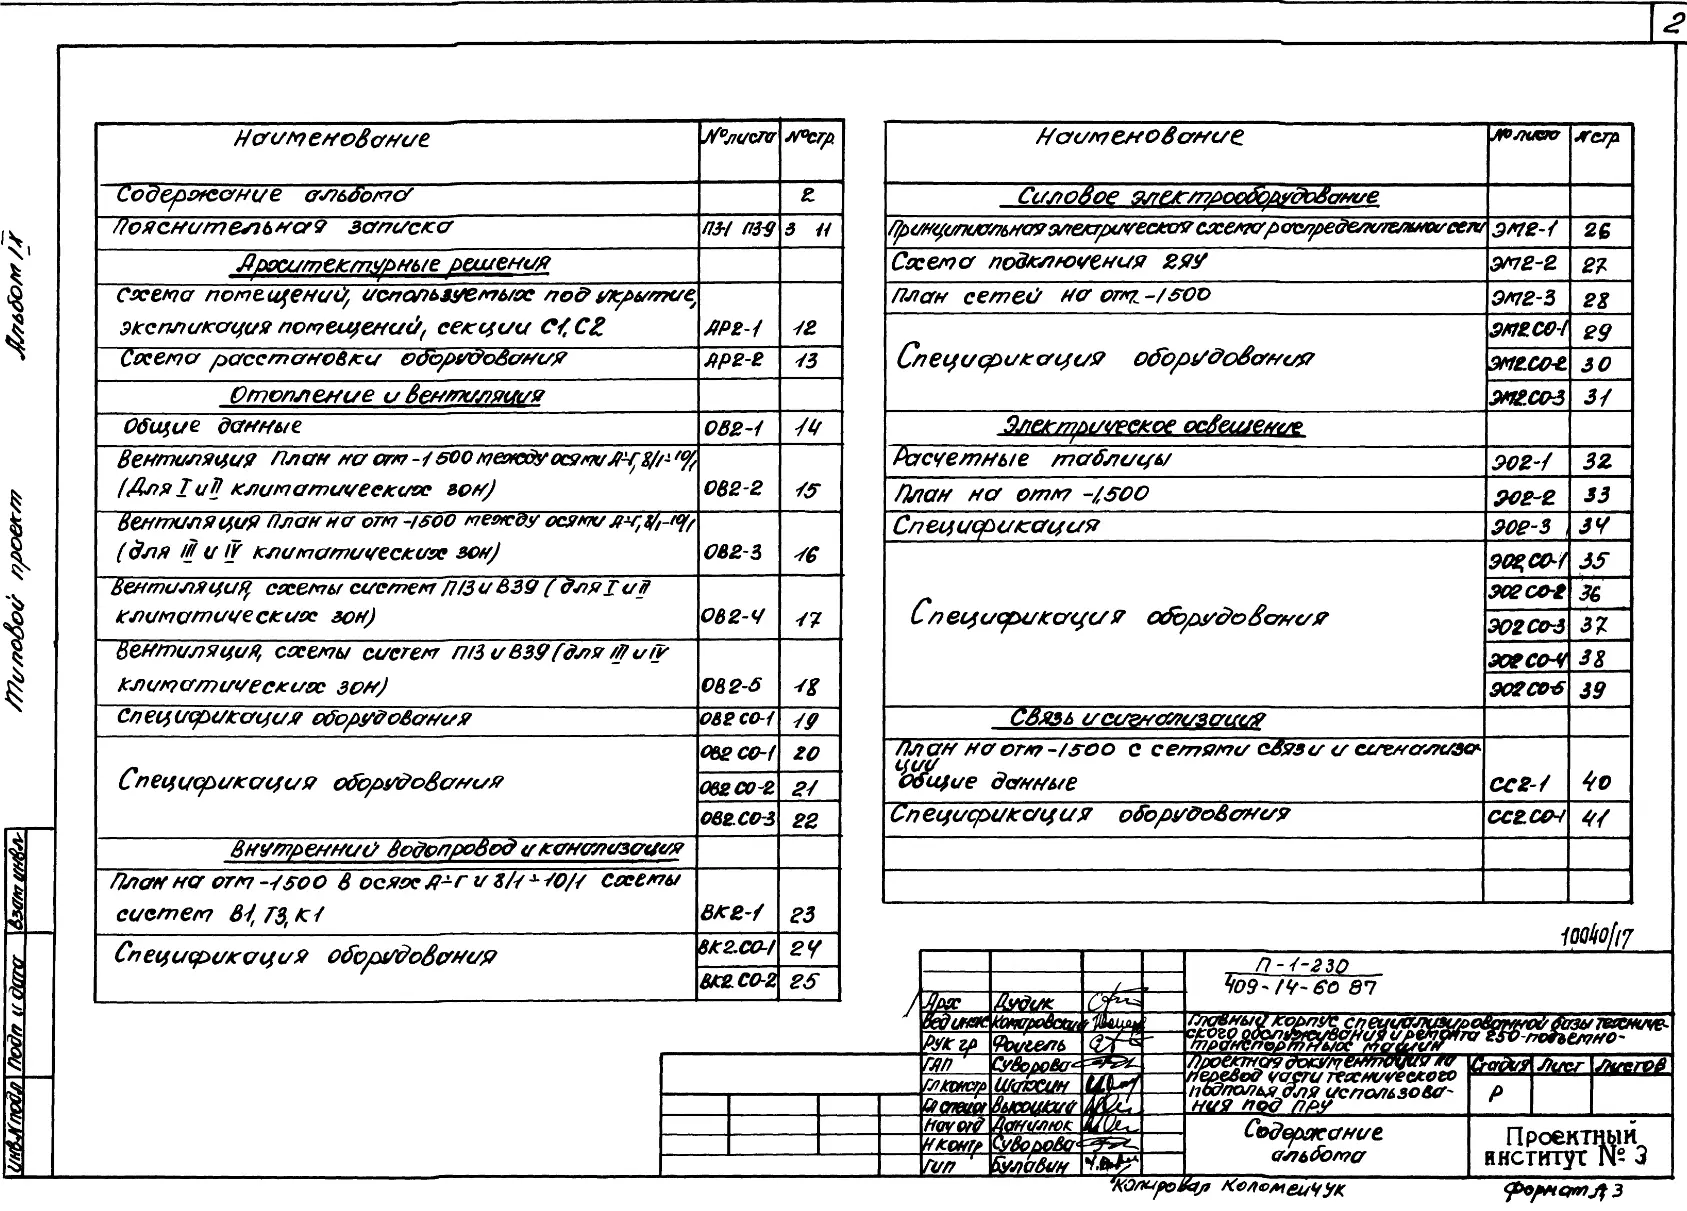 2
Альбом IX
Типовой проект
Наименование №листа №стр.
Содержание альбома 2
Пояснительная записка ПЗ-1 ПЗ-9 3 11
Архитектурные решения
Схема помещений, используемых под укрытие,
экспликация помещений, секции С1, С2 АР2-1 12
Схема расстановки оборудования АР2-2 13
Отопление и вентиляция
Общие данные ОВ2-1 14
Вентиляция План на отм -1500 между осями А÷Г, 8/1÷10/1
(Для I и II климатических зон) ОВ2-2 15
Вентиляция План на отм -1500 между осями А÷Г, 8/1-10/1
(для III и IV климатических зон) ОВ2-3 16
Вентиляция, схемы систем П13 и В39 (для I и II
климатических зон) ОВ2-4 17
Вентиляция, схемы систем П13 и В39 (для III и IV
климатических зон) ОВ2-5 18
Спецификация оборудования ОВ2 СО-1 19
ОВ2 СО-1 20
Спецификация оборудования ОВ2 СО-2 21
ОВ2.СО-3 22
Внутренний водопровод и канализация
План на отм -1500 в осях А÷Г и 8/1÷10/1 Схемы
систем В1, Т3, К1 ВК2-1 23
Спецификация оборудования ВК2.СО-1 24
ВК2.СО-2 25
Наименование № листа № стр
Силовое электрооборудование
Принципиальная электрическая схема распределительной сети ЭМ2-1 26
Схема подключения 2ЯУ ЭМ2-2 27
План сетей на отм. -1500 ЭМ2-3 28
ЭМ2 СО-1 29
Спецификация оборудования ЭМ2.СО-2 30
ЭМ2.СО-3 31
Электрическое освещение
Расчетные таблицы ЭО2-1 32
План на отм -1,500 ЭО2-2 33
Спецификация ЭО2-3 34
ЭО2 СО-1 35
ЭО2 СО-2 36
Спецификация оборудования ЭО2 СО-3 37
ЭО2 СО-4 38
ЭО2 СО-5 39
Связь и сигнализация
План на отм -1500 с сетями связи и сигнализа-
ции
Общие данные СС2-1 40
Спецификация оборудования СС2.СО-1 41
10040/17
П-1-230
409-14-60 87
Арх Дудик
Вед инж Комаровский
Рук гр Фоигель
ГАП Суворова
Гл констр Шапсин
Гл спец Высоцкий
Нач отд Данилюк
Н контр Суворова
Гип Булавин
Главный корпус специализированной базы техниче-
ского обслуживания и ремонта 250-подъемно-
транспортных машин
Проектная документация на
перевод части технического
подполья для использова-
ния под ПРУ
Стадия Лист Листов
Р
Содержание
альбома
Проектный
институт № 3
Копировал Коломейчук
Формат А3
Взам инв.№
Подп и дата
Инв.№ подл